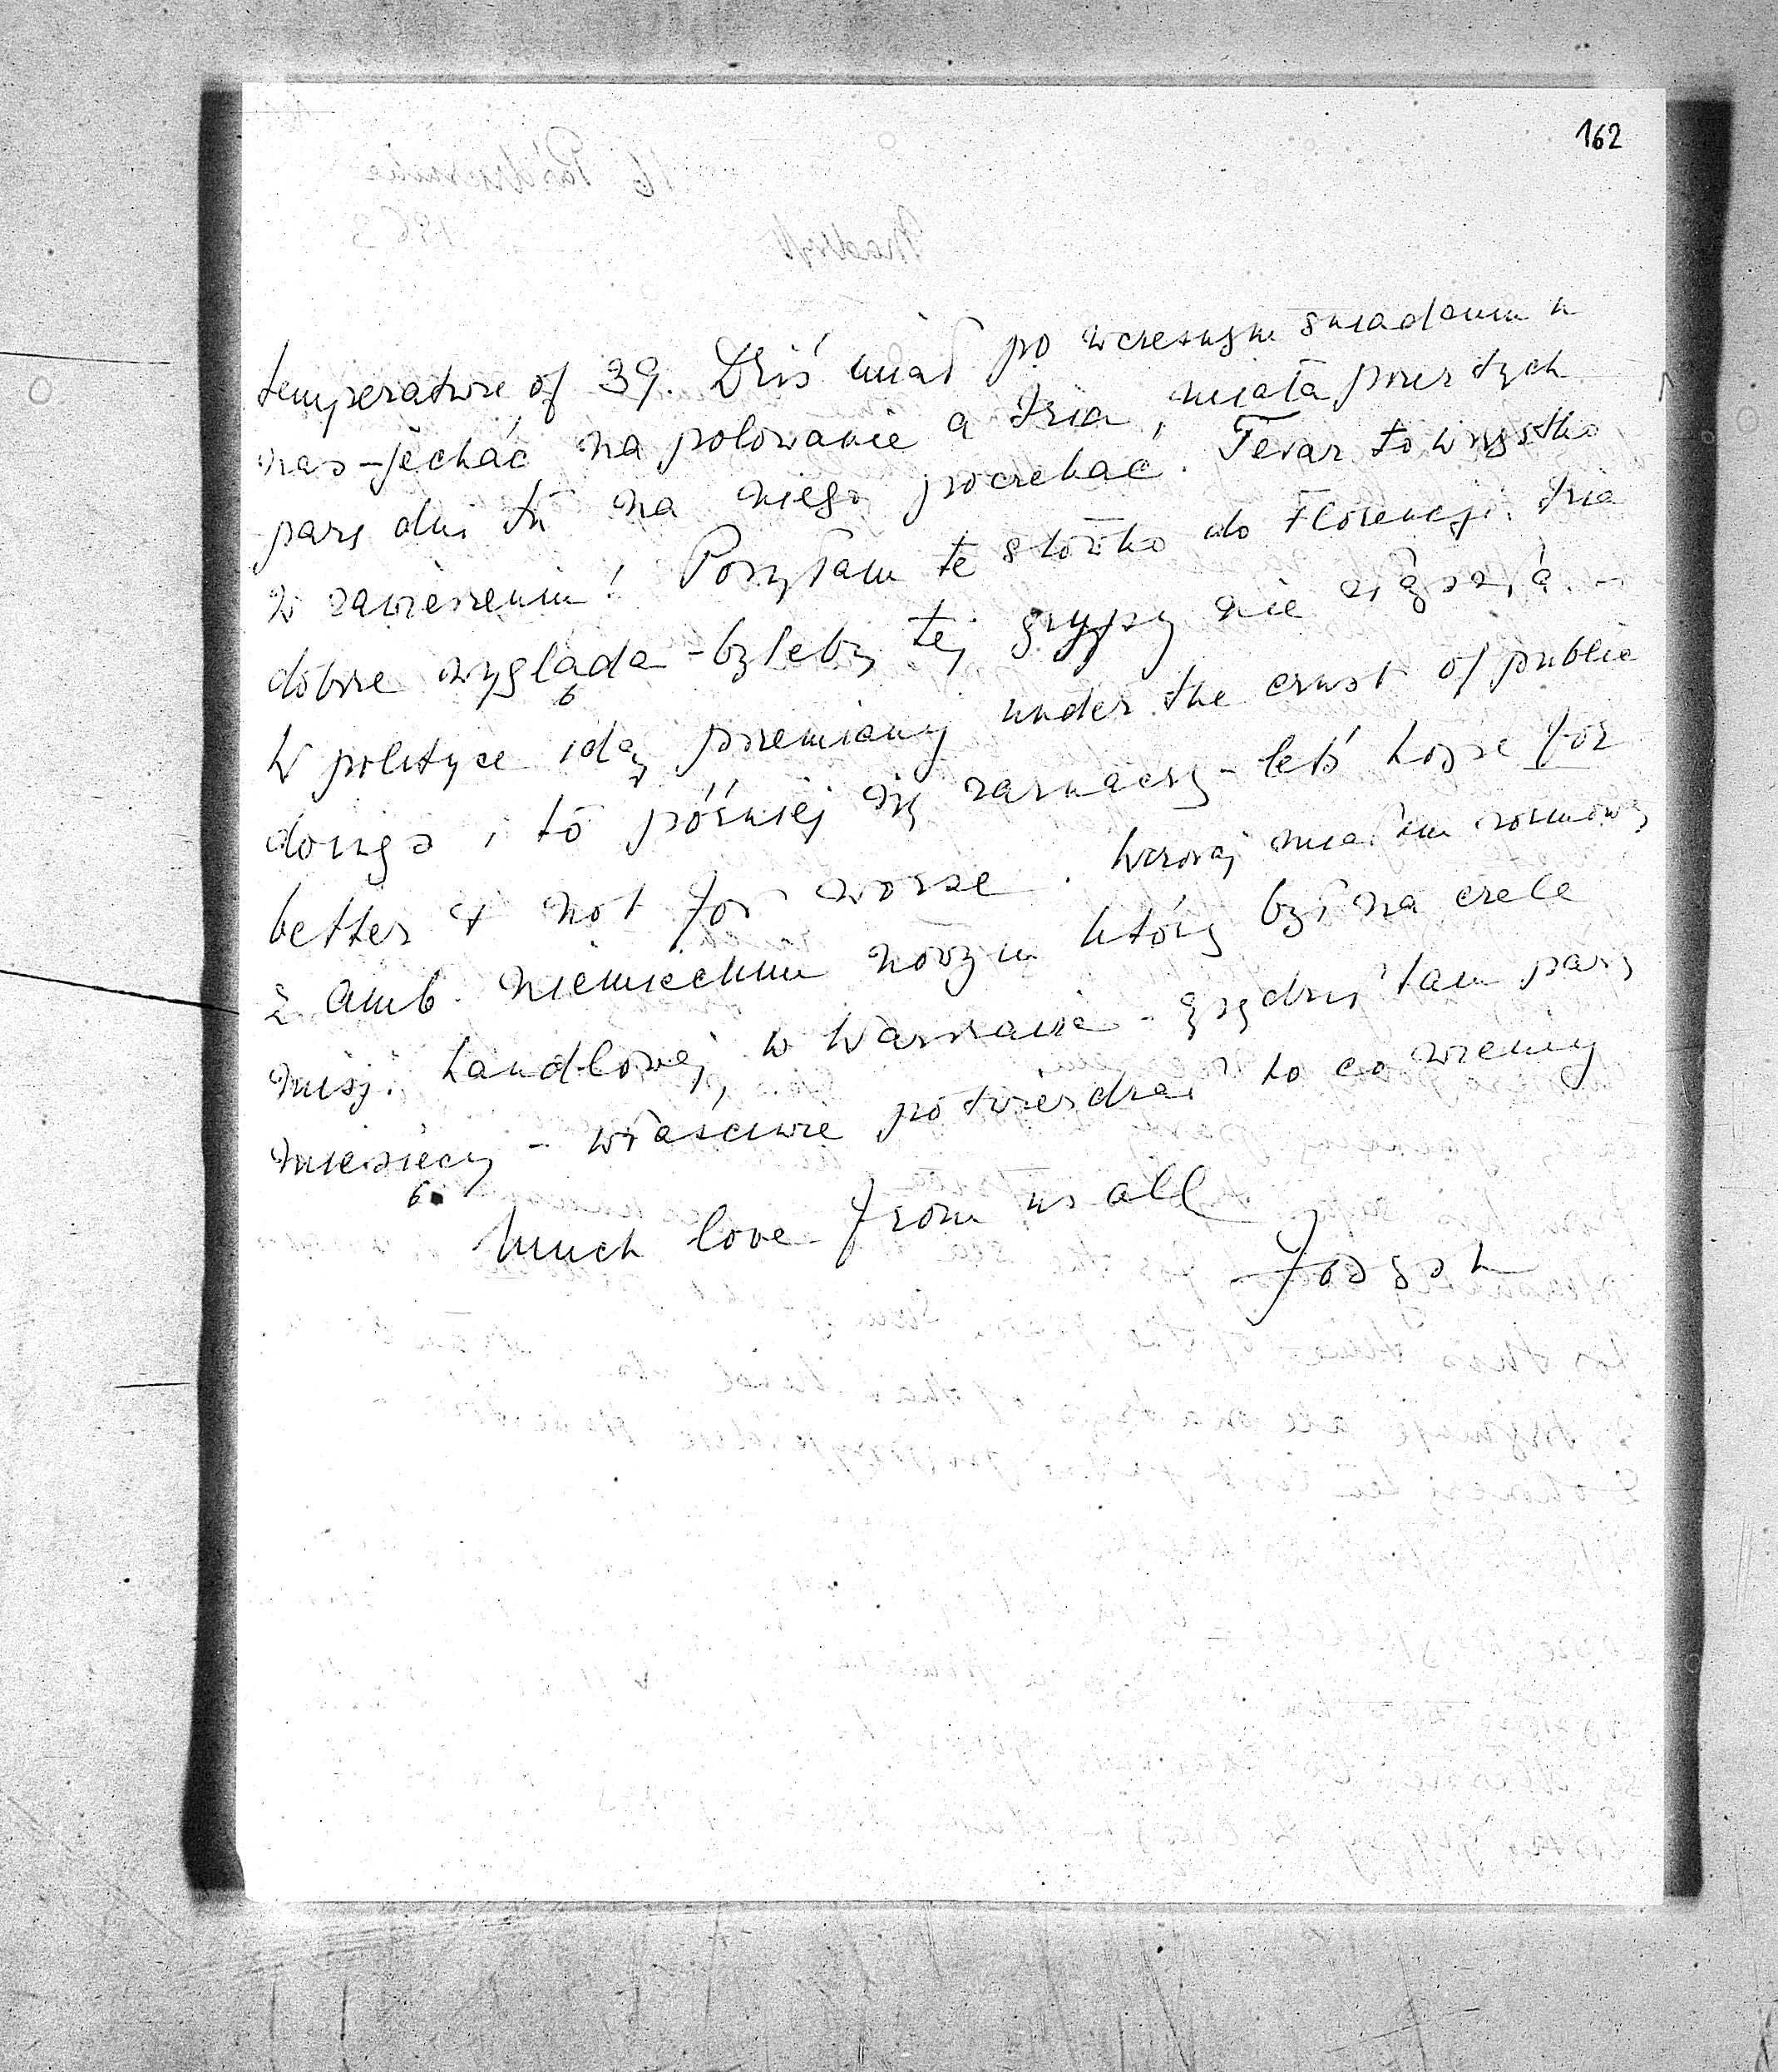 162
temperature of 39. Dziś miał po wczesnym śniadaniu u
nas - jechać na polowanie a Iria, miała przez tych
parę dni tu na niego poczekać. Teraz to wszystko
w zawieszeniu! Posyłam te słówko do Florencji. Iria
dobrze wygląda - byleby tej grypy nie
W polityce idą przemiany under the crust of public
doings i to później się zaznaczy - let's hope for
better & not for worse. Wczoraj miałem rozmowę
z amb. niemieckim nowym który był na czele
misji handlowej w Warszawie - spędził tam parę
miesięcy - właściwie potwierdzał to co wiemy
Much love from us all
Joseph